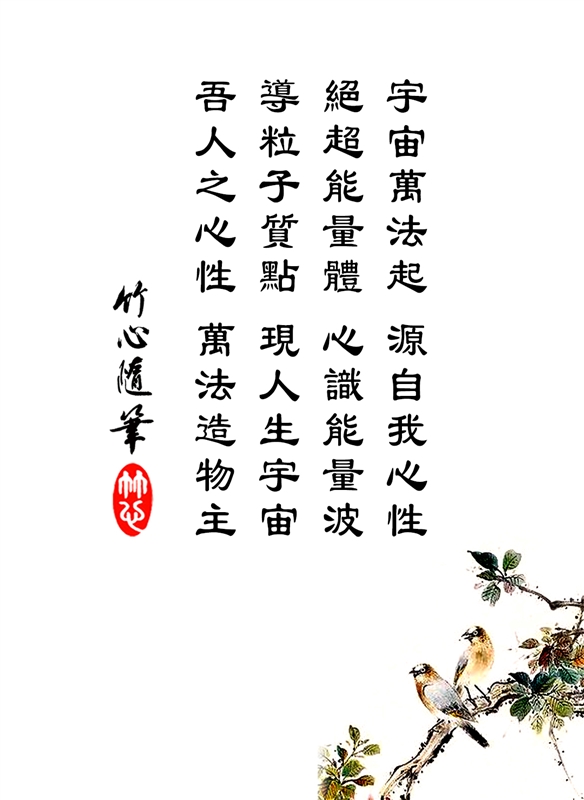 宇宙萬法起 源自我心性
絕超能量體 心識能量波
導粒子質點 現人生宇宙
吾人之心性 萬法造物主
竹心隨筆
竹心